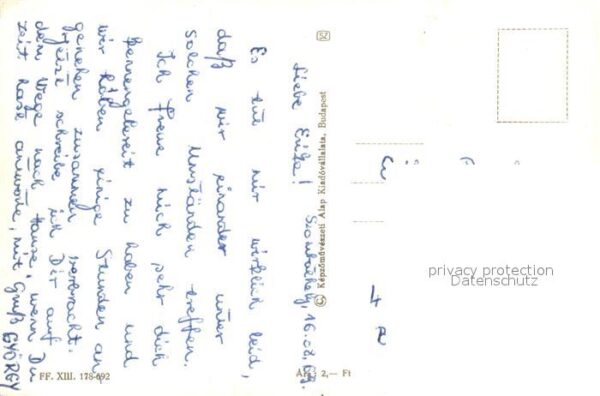 Szombathely, 16.08.69.
Liebe Erika!
Es tut mir wirklich leid,
daß wir einander unter
solchen Umständen treffen.
Ich freue mich sehr dich
kennengelernt zu haben und
wir haben einige Stunden an-
genehen zusammen verbracht.
Jetzt schreibe ich Dir auf
dem Wege nach Hause. wenn Du
Zeit hast antworte, mit Gruß GYÖRGY
SZ
© Képzőművészeti Alap Kiadóvállalata, Budapest
FF. XIII. 178-692
Ára: 2,— Ft
privacy protection
Datenschutz